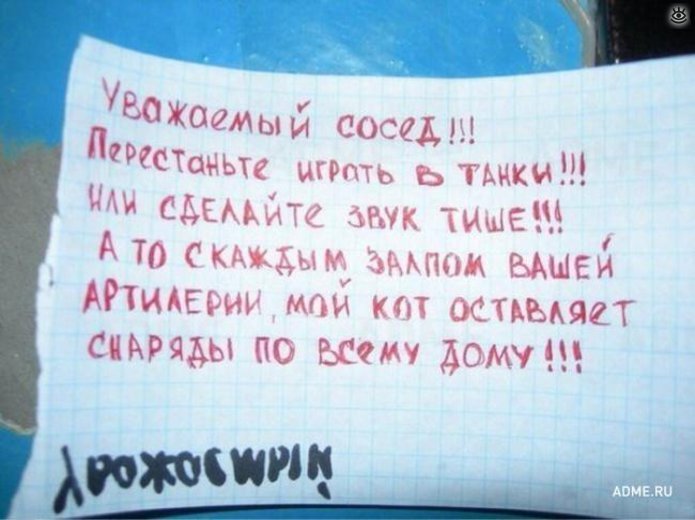 Уважаемый сосед!!!
Перестаньте играть в танки!!!
или сделайте звук тише!!!
А то с каждым залпом вашей
артилерии, мой кот оставляет
снаряды по всему дому!!!
ADME.RU